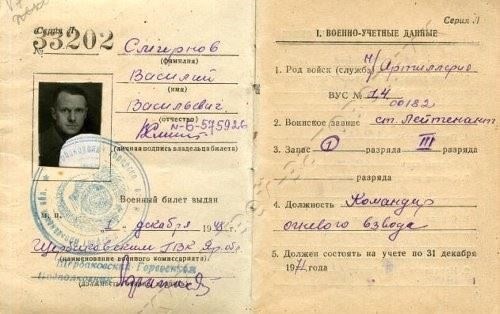 Серия Л
33202
Смирнов
(фамилия)
Василий
(имя)
Васильевич
(отчество)
(личная подпись владельца билета)
Военный билет выдан
м. п.
1 декабря 19
Щербаковским ГВК Яр. обл.
(наименование военного комиссариата)
Щербаковский Городской
Подполковник
Серия Л
I. ВОЕННО-УЧЕТНЫЕ ДАННЫЕ
1. Род войск (службы) Артиллерия
ВУС №
2. Воинское звание ст. Лейтенант
3. Запас 1 разряда III разряда
разряда
4. Должность Командир
огневого взвода
5. Должен состоять на учете по 31 декабря
1971 года